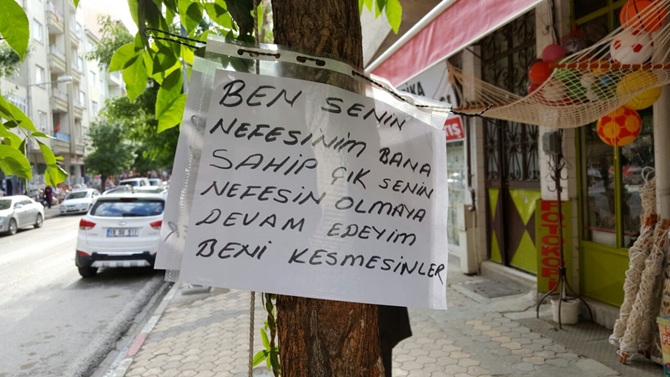 BEN SENİN
NEFESİNİM BANA
SAHİP ÇIK SENİN
NEFESİN OLMAYA
DEVAM EDEYİM
BENİ KESMESİNLER
FOTOKOPİ